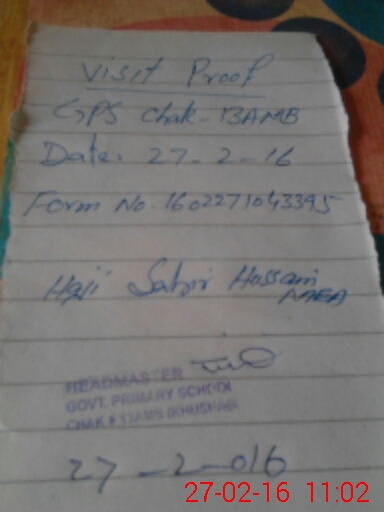 Visit Proof
GPS Chak-13AMB
Date. 27-2-16
Form No. 1602271043395
Haji Sabir Hussain
MEA
HEADMASTER
GOVT. PRIMARY SCHOOL
CHAK # 13AMB (KHUSHAB)
27-2-016
27-02-16 11:02